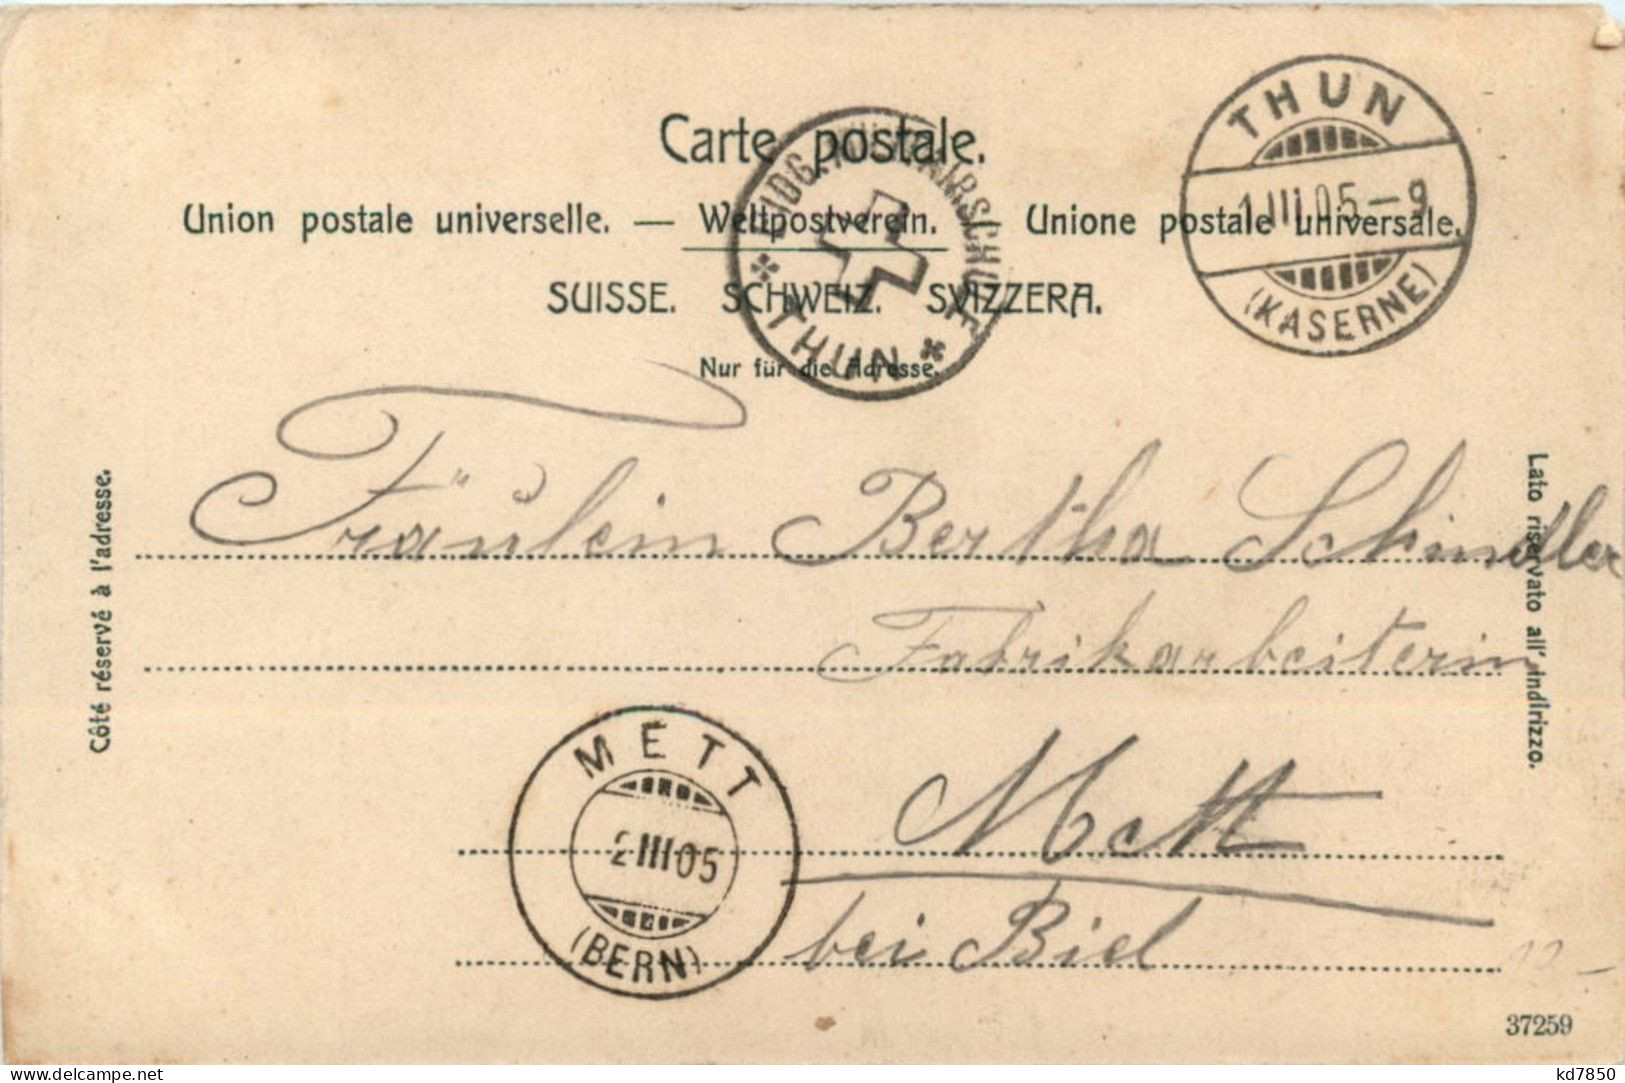 Carte postale.
Union postale universelle. — Weltpostverein. Unione postale universale.
SUISSE. SCHWEIZ. SVIZZERA.
Nur für die Adresse.
THUN
1.III.05-9
(KASERNE)
* THUN *
Côté réservé à l'adresse.
Lato riservato all' indirizzo.
Fräulein Bertha Schindler
Fabrikarbeiterin
Mett
bei Biel
METT
2 III 05
(BERN)
37259
delcampe.net
kd7850